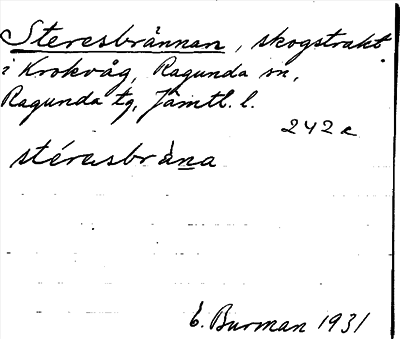 Steresbrännan, skogstrakt
i Krokvåg, Ragunda sn,
Ragunda tg, Jämtl. l.
242 c
stéresbràna
E. Burman 1931